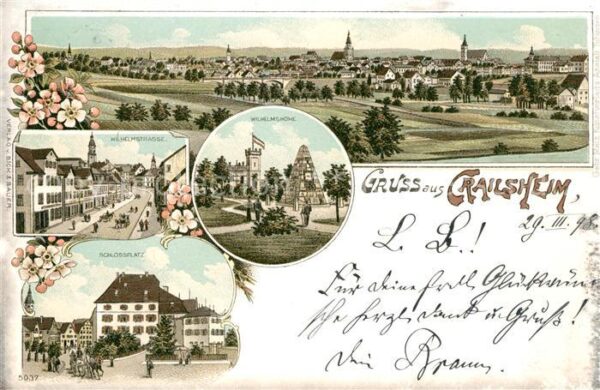 WILHELMSHÖHE
WILHELMSTRASSE
VERLAG V. RICH. E. BAUER.
GRUSS aus CRAILSHEIM,
29. III. 98.
L. B.!
SCHLOSSPLATZ
Für deine frdl. Glückwün
sche herzl. dank u. Gruß!
Dein Braun.
5037